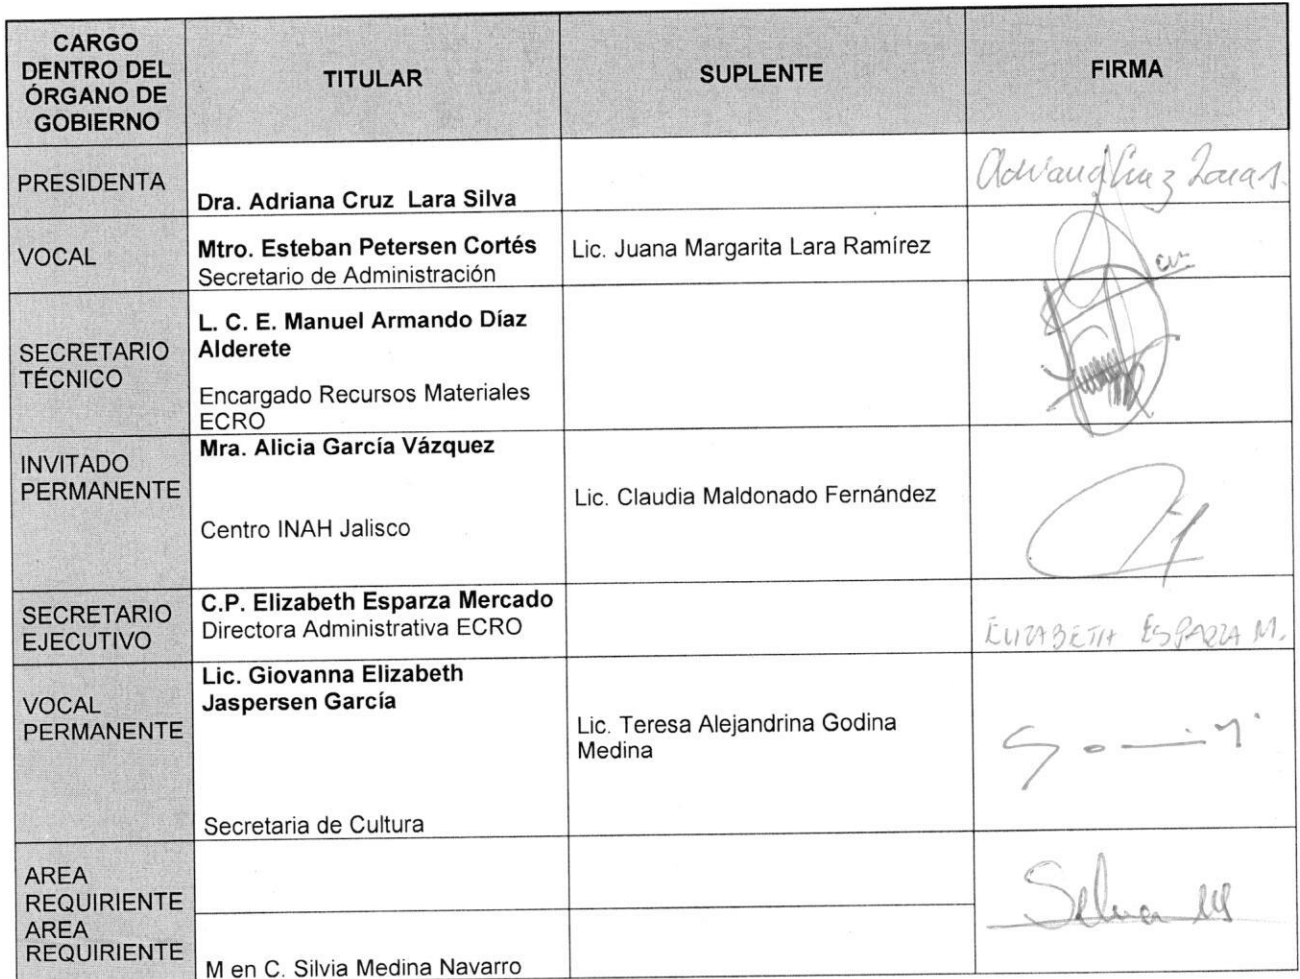 CARGO
DENTRO DEL
ÓRGANO DE
GOBIERNO
TITULAR
SUPLENTE
FIRMA
PRESIDENTA
Dra. Adriana Cruz Lara Silva
Adriana Cruz Lara S.
VOCAL
Mtro. Esteban Petersen Cortés
Secretario de Administración
Lic. Juana Margarita Lara Ramírez
SECRETARIO
TÉCNICO
L. C. E. Manuel Armando Díaz
Alderete
Encargado Recursos Materiales
ECRO
INVITADO
PERMANENTE
Mra. Alicia García Vázquez
Centro INAH Jalisco
Lic. Claudia Maldonado Fernández
SECRETARIO
EJECUTIVO
C.P. Elizabeth Esparza Mercado
Directora Administrativa ECRO
ELIZABETH ESPARZA M.
VOCAL
PERMANENTE
Lic. Giovanna Elizabeth
Jaspersen García
Secretaria de Cultura
Lic. Teresa Alejandrina Godina
Medina
AREA
REQUIRIENTE
AREA
REQUIRIENTE
M en C. Silvia Medina Navarro